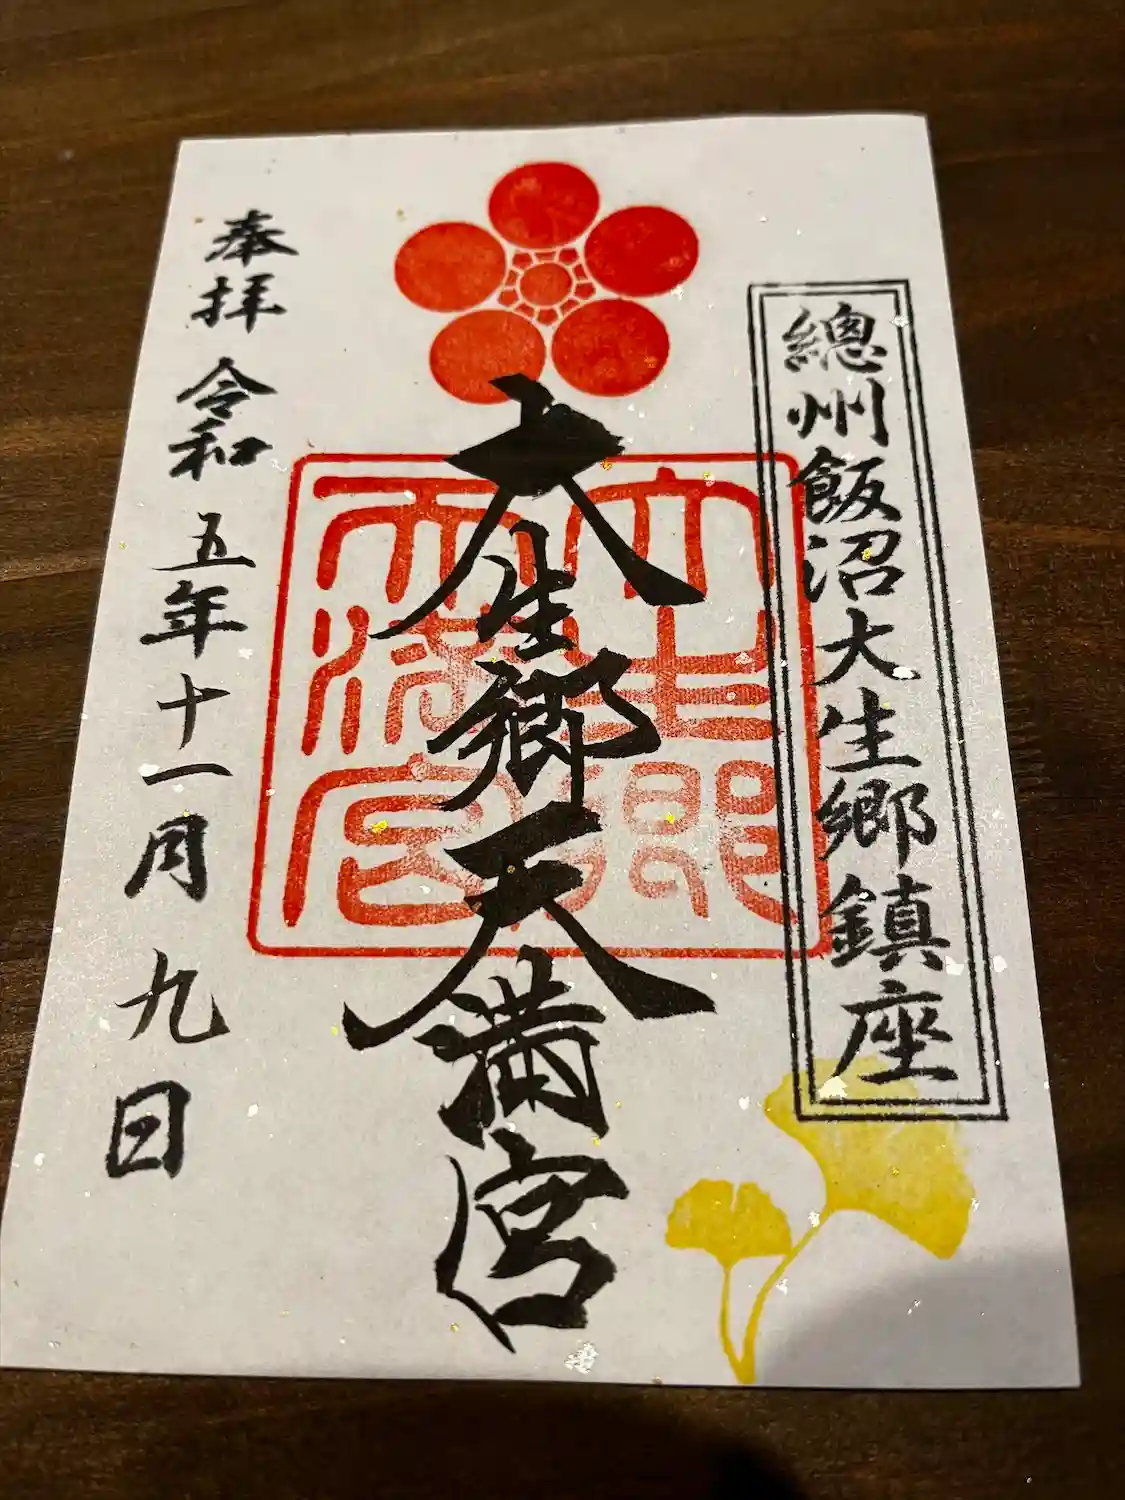 總州飯沼大生郷鎮座
大生郷天満宮
大生郷
天満宮
奉拝 令和五年十一月九日